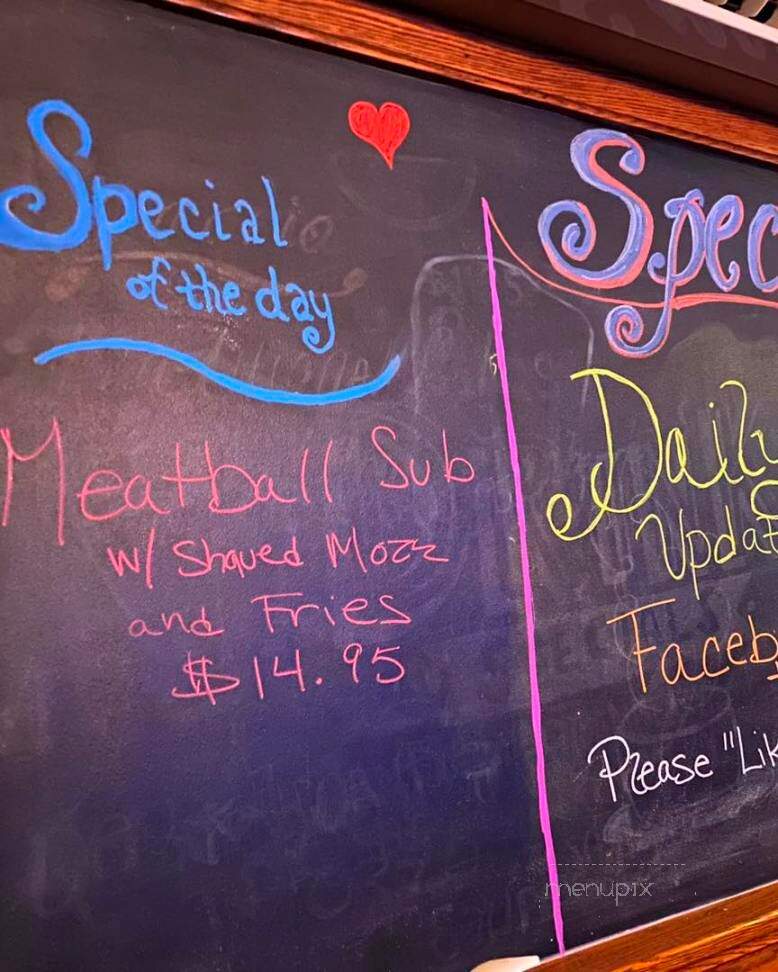 Special
of the day
Meatball Sub
w/ Shaved Mozz
and Fries
$14.95
Spec
Daily
Updat
Faceb
Please "Lik
menupix